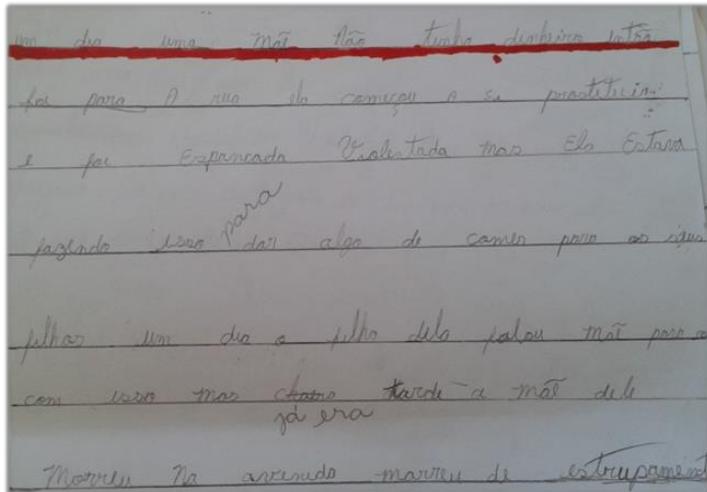 um dia uma mãe não tinha dinheiro intrã
foi para A rua ela começou a si prostiticin
e foi Espancada Violentada mas Ela Estava
fazendo isso para dar algo de comer para os seus
filhos um dia o filho dela falou mãe para
com isso mas já era tarde a mãe dele
Morreu na avenida morreu de estrupament